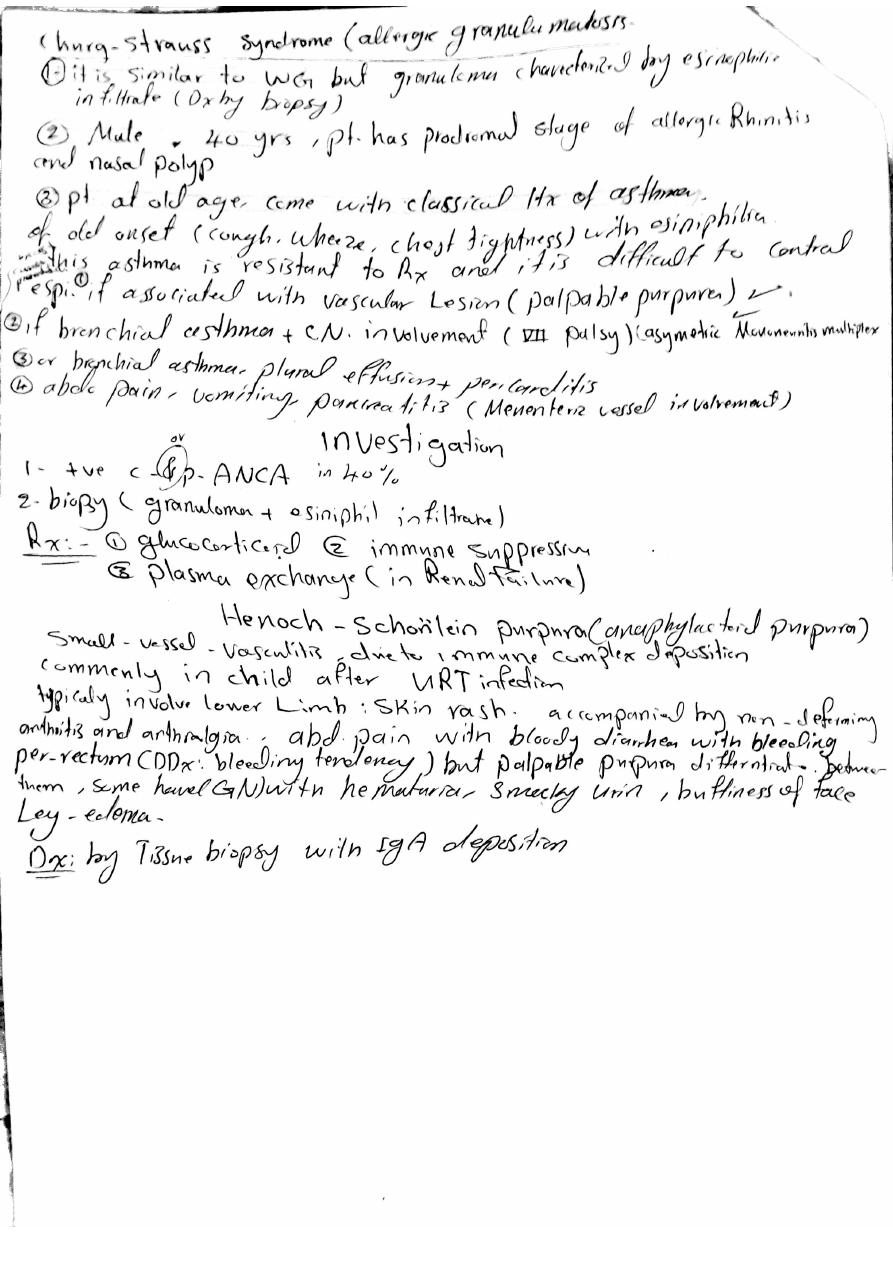 Churg-Strauss Syndrome (allergic granulumatosis
① it is similar to WG but granuloma characterized by esinophilic
infiltrate (Dx by biopsy)
② Male . 40 yrs , pt. has prodromal stage of allergic Rhinitis
and nasal polyp
③ pt at old age, come with classical Hx of asthma.
of old onset (cough. wheeze, chest tightness) with esiniphilia
this asthma is resistant to Rx and it is difficult to control
respi. ① if associated with vascular Lesion (palpable purpura)
② if bronchial asthma + C.N. involvement (VII palsy) (asymetric Mononeuritis multiplex
③ or bronchial asthma, plural effusion + pericarditis
④ abdo pain, vomiting, pancreatitis (Mesenteric vessel involvement)
Investigation
1- +ve c - or p- ANCA in 40%
2- biopsy (granuloma + esiniphil infiltrate)
Rx:- ① glucocorticoid ② immune suppressive
③ plasma exchange (in Renal failure)
Henoch - Schonlein purpura (anaphylactoid purpura)
Small-vessel-vasculitis, due to immune complex deposition
commenly in child after URT infection
typicaly involve lower Limb : Skin rash. accompanied by non-deforming
arthritis and arthralgia. , abd. pain with bloody diarrhea with bleeding
per-rectum (DDx: bleeding tendency) but palpable purpura differntiat. between
them , some have (GN) with hematuria, smocky urin , buffiness of face
Leg-edema-
Dx: by Tissue biopsy with IgA deposition